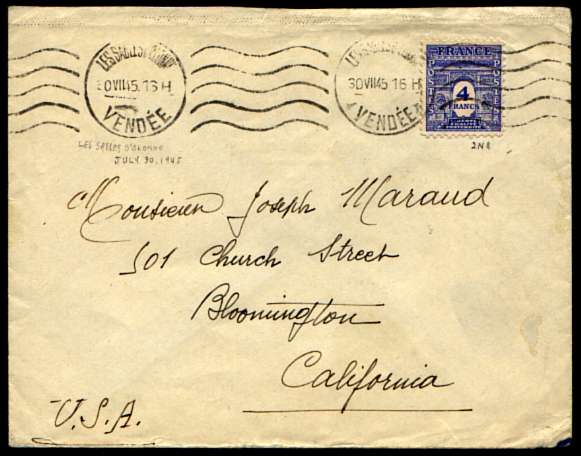 LES SABLES D'OLONNE
30 VII 45. 16 H
VENDÉE
30 VII 45 16 H
VENDÉE
FRANCE
POSTES
POSTES
4
FRANCS
LES SABLES D'OLONNE
JULY 30, 1945
Monsieur Joseph Maraud
501 Church Street
Bloomington
California
U.S.A.